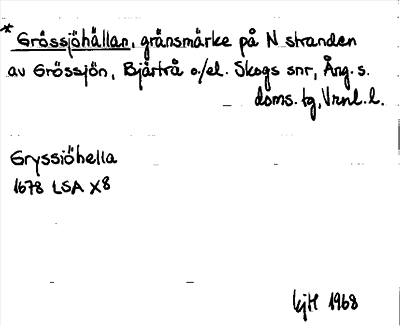 * Grössjöhällan, gränsmärke på N stranden
av Grössjön, Bjärtrå o./el. Skogs snr, Ång. s.
doms. tg, Vrnl. l.
Gryssiöhella
1678 LSA X8
KjH 1968